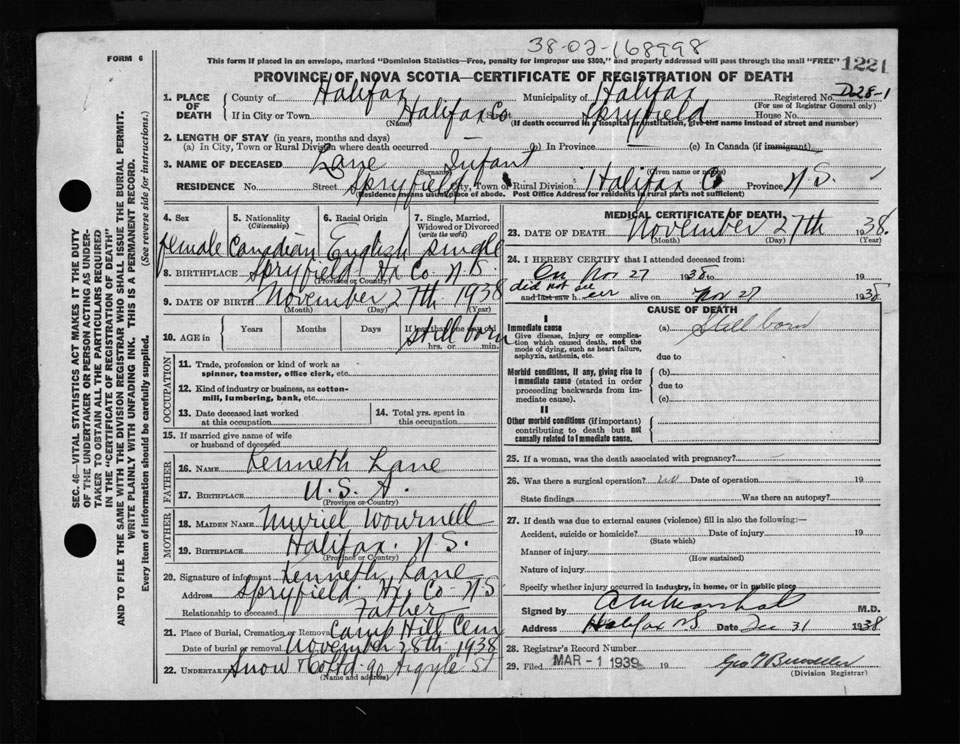 38-02-168998
FORM 6
This form if placed in an envelope, marked "Dominion Statistics—Free, penalty for improper use $300," and properly addressed will pass through the mail "FREE"
1221
PROVINCE OF NOVA SCOTIA—CERTIFICATE OF REGISTRATION OF DEATH
1. PLACE OF DEATH
County of Halifax Municipality of Halifax Registered No. D28-1
(For use of Registrar General only)
If in City or Town Halifax Co Spryfield House No.
(Name) (If death occurred in a hospital or institution, give the name instead of street and number)
2. LENGTH OF STAY (in years, months and days)
(a) In City, Town or Rural Division where death occurred (b) In Province (c) In Canada (if immigrant)
3. NAME OF DECEASED Lane Infant
(Surname) (Given name or names)
RESIDENCE No. Street Spryfield City, Town or Rural Division Halifax Co Province N.S.
(Residence means usual place of abode. Post Office Address for residents in rural parts not sufficient)
4. Sex
female
5. Nationality
(Citizenship)
Canadian
6. Racial Origin
English
7. Single, Married, Widowed or Divorced
(write the word)
single
8. BIRTHPLACE Spryfield Hx Co N.S.
(Province or Country)
9. DATE OF BIRTH November 27th 1938
(Month) (Day) (Year)
10. AGE in Years Months Days If less than one day old
still born
hrs. or min.
OCCUPATION
11. Trade, profession or kind of work as spinner, teamster, office clerk, etc.
12. Kind of industry or business, as cotton-mill, lumbering, bank, etc.
13. Date deceased last worked at this occupation
14. Total yrs. spent in this occupation
15. If married give name of wife or husband of deceased
FATHER
16. NAME Kenneth Lane
17. BIRTHPLACE U.S.A.
(Province or Country)
MOTHER
18. MAIDEN NAME Muriel Wournell
19. BIRTHPLACE Halifax. N.S.
(Province or Country)
20. Signature of informant Kenneth Lane
Address Spryfield Hx Co N.S
Relationship to deceased Father
21. Place of Burial, Cremation or Removal Camp Hill Cem
Date of burial or removal November 28th 1938
22. Undertaker Snow & Co Ltd 90 Argyle St
(Name and address)
MEDICAL CERTIFICATE OF DEATH
23. DATE OF DEATH November 27th 1938.
(Month) (Day) (Year)
24. I HEREBY CERTIFY that I attended deceased from:
On Nov 27 1938 to
did not see
and last saw her alive on Nov 27 1938
CAUSE OF DEATH
I
Immediate cause
Give disease, injury or complication which caused death, not the mode of dying, such as heart failure, asphyxia, asthenia, etc.
(a) Still born
due to
Morbid conditions, if any, giving rise to immediate cause (stated in order proceeding backwards from immediate cause).
(b)
due to
(c)
II
Other morbid conditions (if important) contributing to death but not causally related to immediate cause.
25. If a woman, was the death associated with pregnancy?
26. Was there a surgical operation? no Date of operation 19
State findings Was there an autopsy?
27. If death was due to external causes (violence) fill in also the following:—
Accident, suicide or homicide? Date of injury 19
(State which)
Manner of injury
(How sustained)
Nature of injury
Specify whether injury occurred in industry, in home, or in public place
Signed by Marshall M.D.
Address Halifax NS Date Dec 31 1938
28. Registrar's Record Number
29. Filed MAR -1 1939 Geo
(Division Registrar)
SEC. 46—VITAL STATISTICS ACT MAKES IT THE DUTY
OF THE UNDERTAKER OR PERSON ACTING AS UNDER-
TAKER TO OBTAIN ALL THE PARTICULARS REQUIRED
IN THE "CERTIFICATE OF REGISTRATION OF DEATH"
AND TO FILE THE SAME WITH THE DIVISION REGISTRAR WHO SHALL ISSUE THE BURIAL PERMIT.
WRITE PLAINLY WITH UNFADING INK. THIS IS A PERMANENT RECORD.
Every item of information should be carefully supplied. (See reverse side for instructions.)